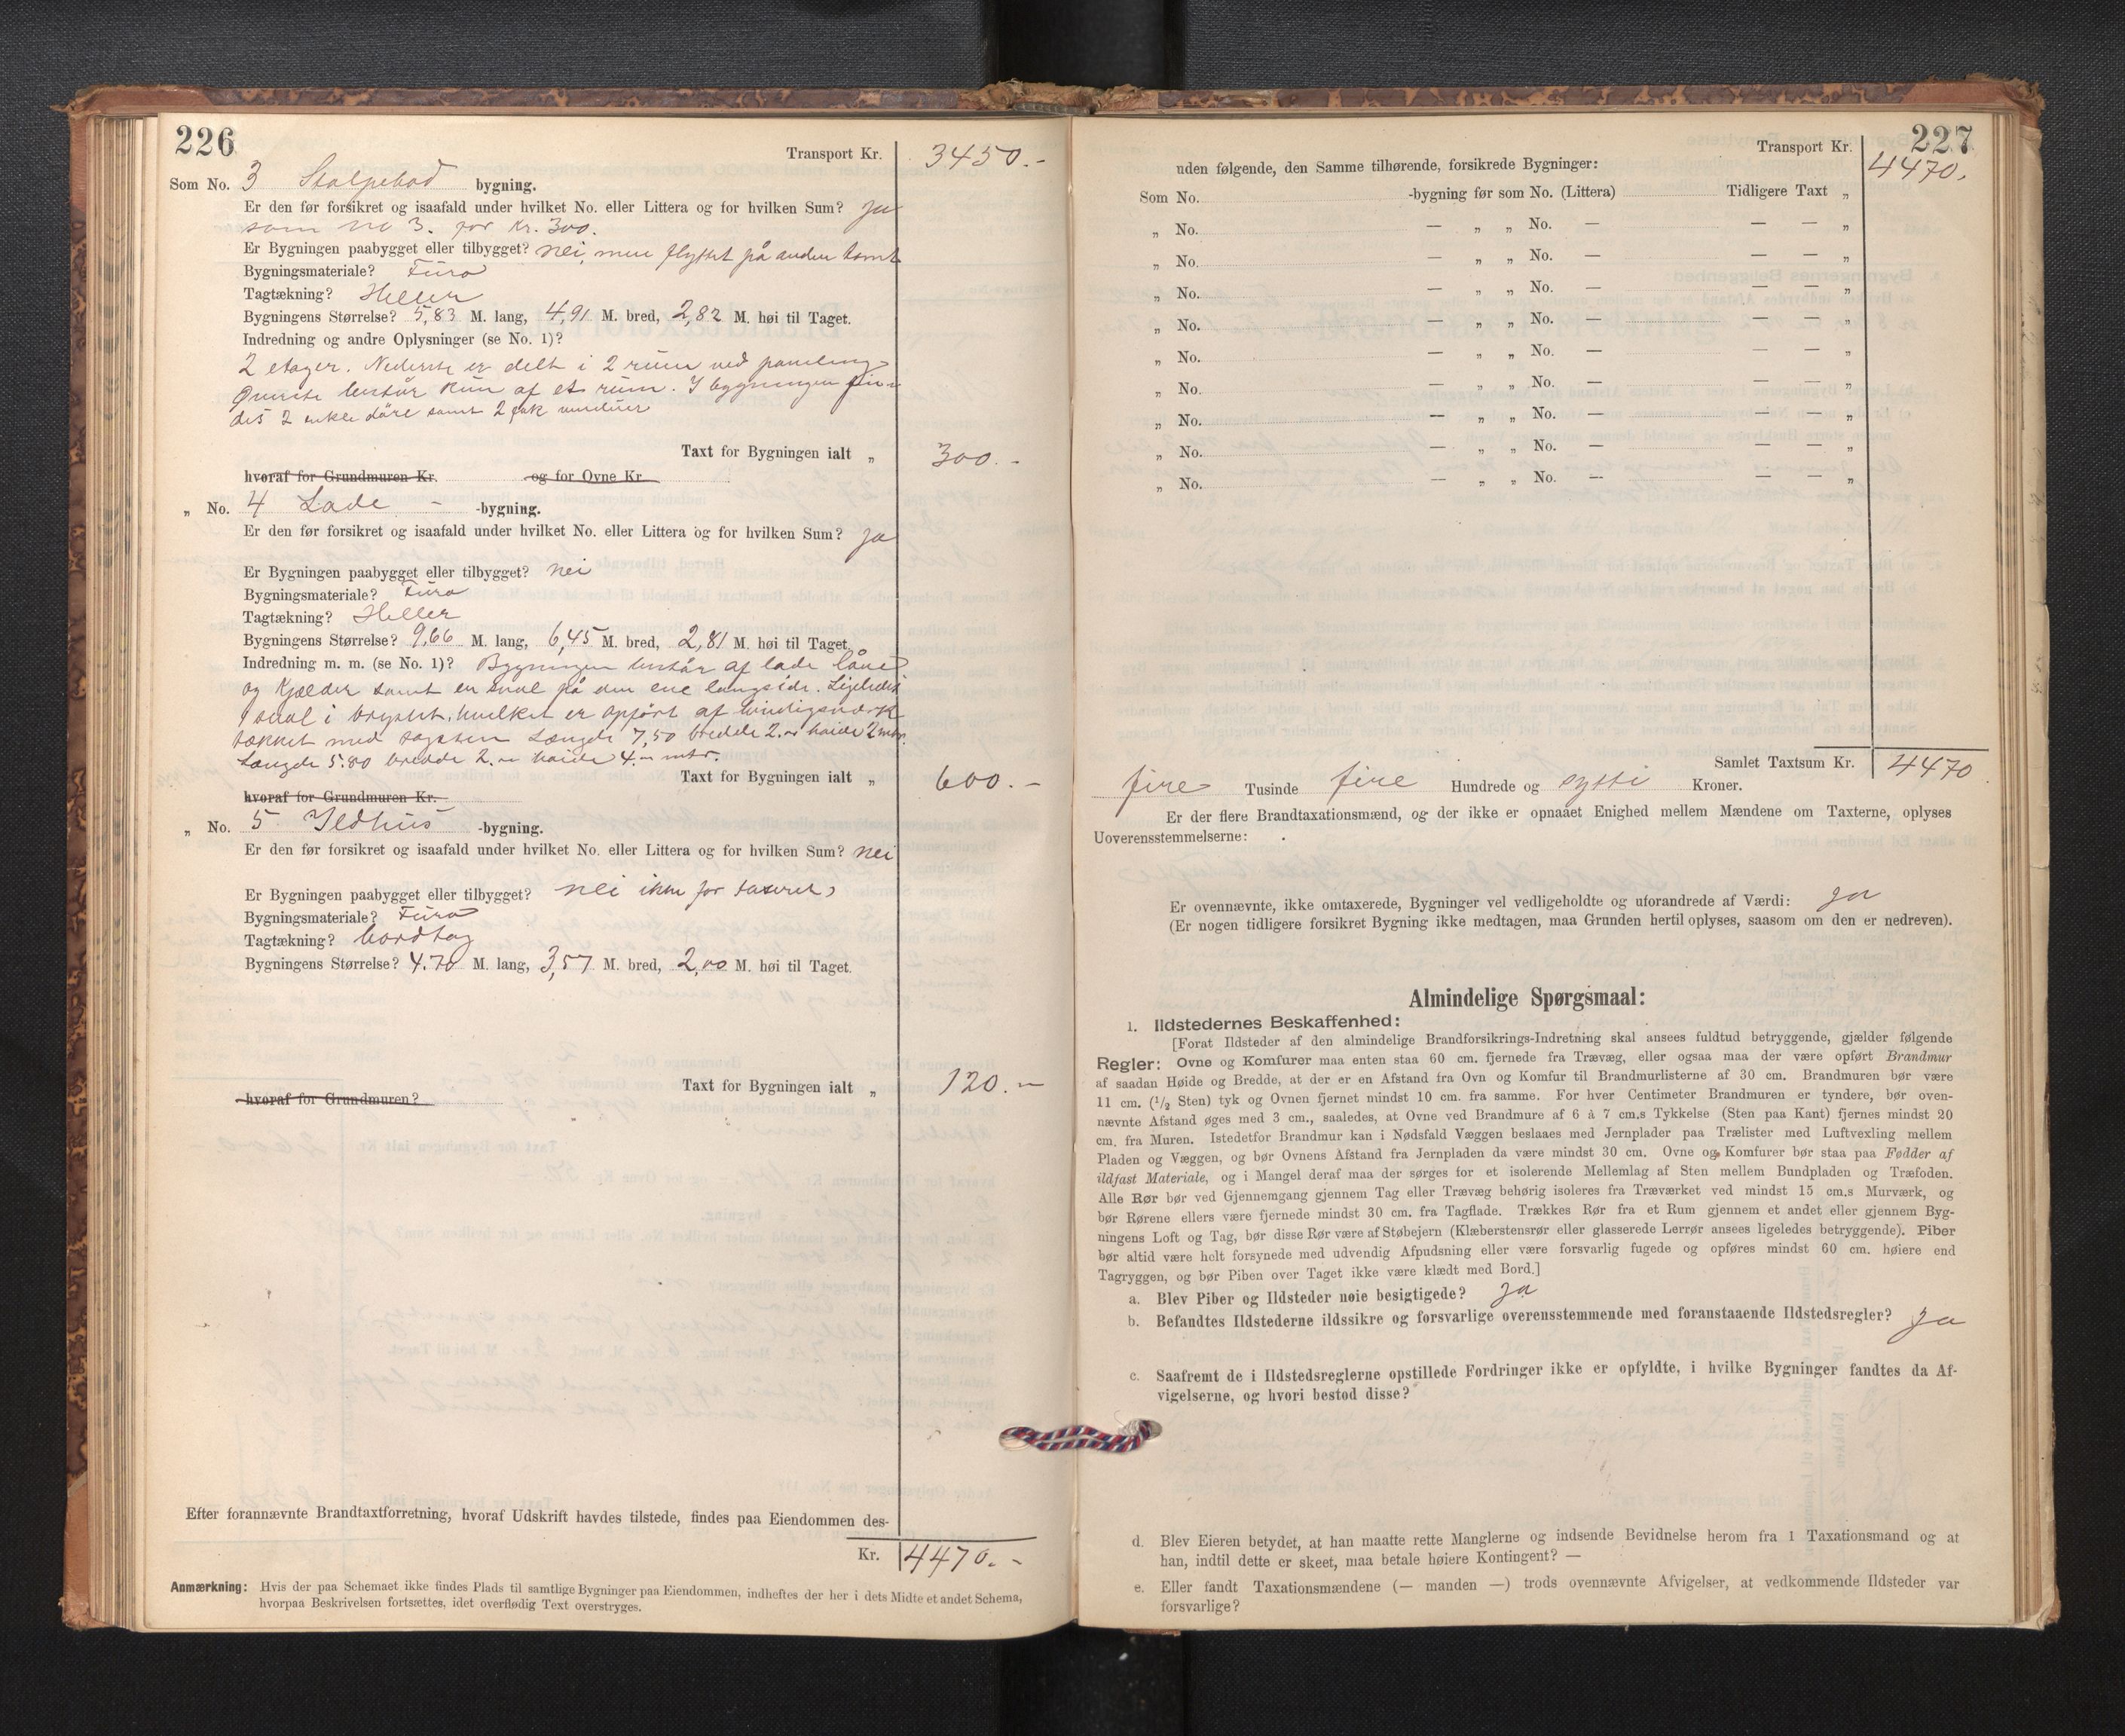 226
Transport Kr. 3450.-
Som No. 3 Stolpebod bygning.
Er den før forsikret og isaafald under hvilket No. eller Littera og for hvilken Sum? ja
som no 3. for Kr. 300.
Er Bygningen paabygget eller tilbygget? nei, men flyttet på anden tomt
Bygningsmateriale? Furu
Tagtækning? Heller
Bygningens Størrelse? 5,83 M. lang, 4,91 M. bred, 2,82 M. høi til Taget.
Indredning og andre Oplysninger (se No. 1)?
2 etager. Nederste er delt i 2 rum ved paneling
Øverste består kun af et rum. I bygningen fin-
des 2 enkle döre samt 2 fak vinduer
Taxt for Bygningen ialt „ 300.-
hvoraf for Grundmuren Kr. og for Ovne Kr.
„ No. 4 Lade - -bygning.
Er den før forsikret og isaafald under hvilket No. eller Littera og for hvilken Sum? ja
Er Bygningen paabygget eller tilbygget? nei
Bygningsmateriale? Furu
Tagtækning? Heller
Bygningens Størrelse? 9,66 M. lang, 6,45 M. bred, 2,81 M. høi til Taget.
Indredning m. m. (se No. 1)? Bygningen består af lade låve
og Kjælder samt en sval på den ene langside. Ligeledes
sval i brystet, hvilket er opført af bindigsværk
tækket med tagsten Længde 7,50 bredde 2.- høide 2 mtr.
Længde 5.80 bredde 2.- høide 4.- mtr.
Taxt for Bygningen ialt „ 600.-
hvoraf for Grundmuren Kr.
„ No. 5 Ildhus -bygning.
Er den før forsikret og isaafald under hvilket No. eller Littera og for hvilken Sum? nei
Er Bygningen paabygget eller tilbygget? nei ikke før taxeret
Bygningsmateriale? Furu
Tagtækning? bordtag
Bygningens Størrelse? 4.70 M. lang, 3,57 M. bred, 2,00 M. høi til Taget.
Taxt for Bygningen ialt „ 120.-
hvoraf for Grundmuren?
Efter forannævnte Brandtaxtforretning, hvoraf Udskrift havdes tilstede, findes paa Eiendommen des-
Kr. 4470.-
Anmærkning: Hvis der paa Schemaet ikke findes Plads til samtlige Bygninger paa Eiendommen, indheftes der her i dets Midte et andet Schema,
hvorpaa Beskrivelsen fortsættes, idet overflødig Text overstryges.
227
Transport Kr. 4470.
uden følgende, den Samme tilhørende, forsikrede Bygninger:
Som No. -bygning før som No. (Littera) Tidligere Taxt „
„ No. — „ „ No. — — — „
„ No. — „ „ No. — — — „
„ No. — „ „ No. — — — „
„ No. — „ „ No. — — — „
„ No. — „ „ No. — — — „
„ No. — „ „ No. — — — „
„ No. — „ „ No. — — — „
„ No. — „ „ No. — — — „
„ No. — „ „ No. — — — „
Samlet Taxtsum Kr. 4470
fire Tusinde fire Hundrede og sytti Kroner.
Er der flere Brandtaxationsmænd, og der ikke er opnaaet Enighed mellem Mændene om Taxterne, oplyses
Uoverensstemmelserne:
Er ovennævnte, ikke omtaxerede, Bygninger vel vedligeholdte og uforandrede af Værdi: ja
(Er nogen tidligere forsikret Bygning ikke medtagen, maa Grunden hertil oplyses, saasom om den er nedreven).
Almindelige Spørgsmaal:
1. Ildstedernes Beskaffenhed:
[Forat Ildsteder af den almindelige Brandforsikrings-Indretning skal ansees fuldtud betryggende, gjælder følgende
Regler: Ovne og Komfurer maa enten staa 60 cm. fjernede fra Trævæg, eller ogsaa maa der være opført Brandmur
af saadan Høide og Bredde, at der er en Afstand fra Ovn og Komfur til Brandmurlisterne af 30 cm. Brandmuren bør være
11 cm. (1/2 Sten) tyk og Ovnen fjernet mindst 10 cm. fra samme. For hver Centimeter Brandmuren er tyndere, bør oven-
nævnte Afstand øges med 3 cm., saaledes, at Ovne ved Brandmure af 6 à 7 cm.s Tykkelse (Sten paa Kant) fjernes mindst 20
cm. fra Muren. Istedetfor Brandmur kan i Nødsfald Væggen beslaaes med Jernplader paa Trælister med Luftvexling mellem
Pladen og Væggen, og bør Ovnens Afstand fra Jernpladen da være mindst 30 cm. Ovne og Komfurer bør staa paa Fødder af
ildfast Materiale, og i Mangel deraf maa der sørges for et isolerende Mellemlag af Sten mellem Bundpladen og Træfoden.
Alle Rør bør ved Gjennemgang gjennem Tag eller Trævæg behørig isoleres fra Træværket ved mindst 15 cm.s Murværk, og
bør Rørene ellers være fjernede mindst 30 cm. fra Tagflade. Trækkes Rør fra et Rum gjennem et andet eller gjennem Byg-
ningens Loft og Tag, bør disse Rør være af Støbejern (Klæberstensrør eller glasserede Lerrør ansees ligeledes betryggende). Piber
bør altid være helt forsynede med udvendig Afpudsning eller være forsvarlig fugede og opføres mindst 60 cm. høiere end
Tagryggen, og bør Piben over Taget ikke være klædt med Bord.]
a. Blev Piber og Ildsteder nøie besigtigede? ja
b. Befandtes Ildstederne ildssikre og forsvarlige overensstemmende med foranstaaende Ildstedsregler? ja
c. Saafremt de i Ildstedsreglerne opstillede Fordringer ikke er opfyldte, i hvilke Bygninger fandtes da Af-
vigelserne, og hvori bestod disse?
d. Blev Eieren betydet, at han maatte rette Manglerne og indsende Bevidnelse herom fra 1 Taxationsmand og at
han, indtil dette er skeet, maa betale høiere Kontingent? —
e. Eller fandt Taxationsmændene (— manden —) trods ovennævnte Afvigelser, at vedkommende Ildsteder var
forsvarlige?